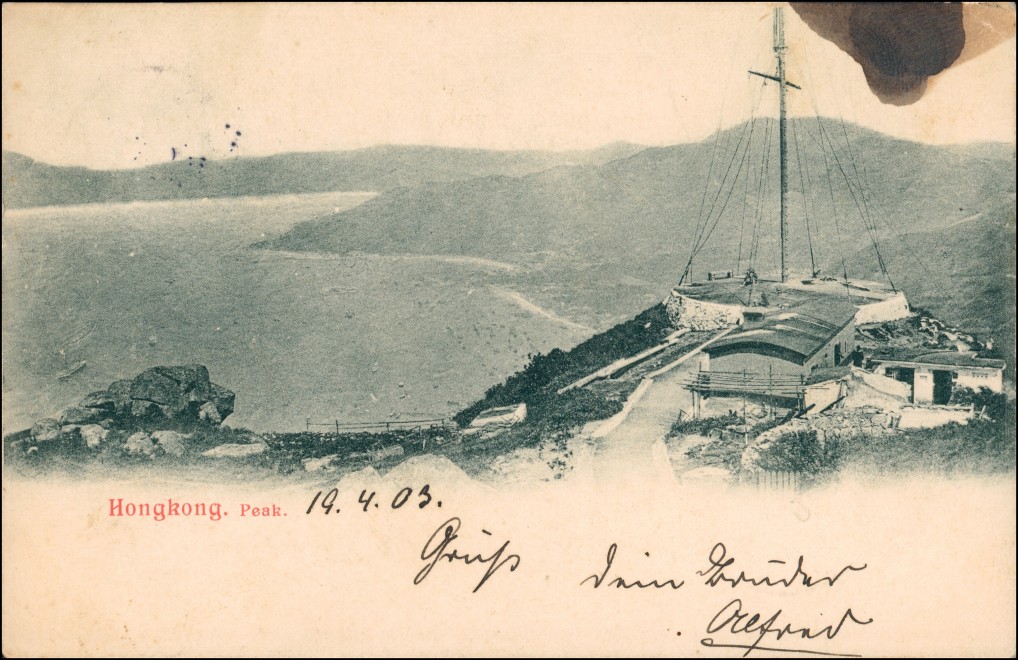 Hongkong. Peak. 19. 4. 03.
Gruß dein Bruder
Alfred